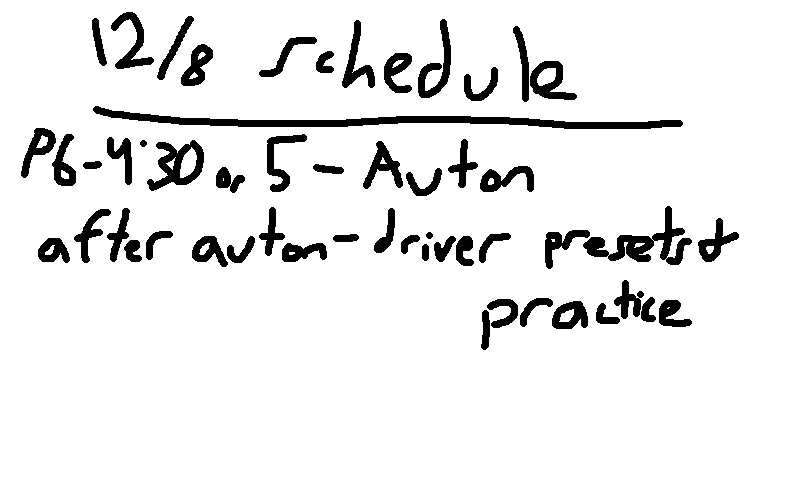 12/8 schedule
P6-4:30 or 5 - Auton
after auton - driver presets &
practice